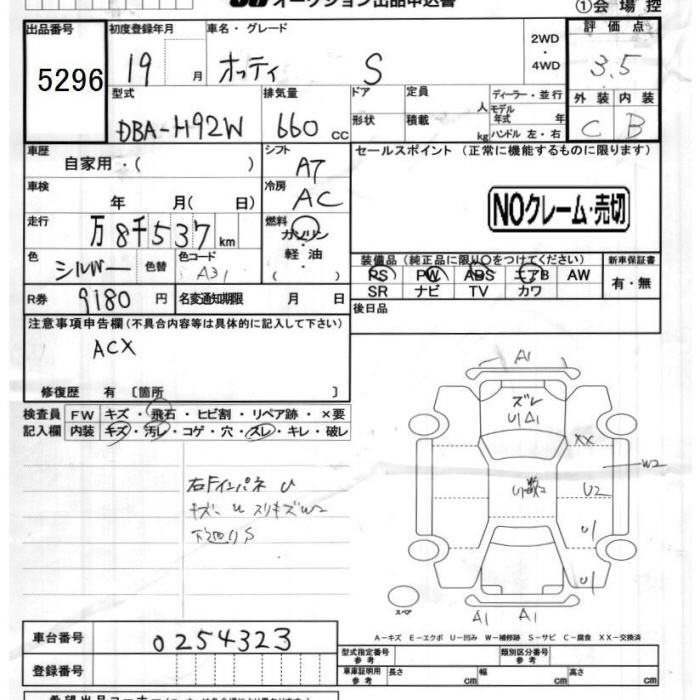 オークション出品申込書
①会場控
出品番号
5296
初度登録年月
19 月
車名・グレード
オッティ S
2WD
・
4WD
評価点
3.5
型式
DBA-H92W
排気量
660 cc
ドア
形状
定員 人
積載 kg
ディーラー・並行
モデル年式 年
ハンドル 左・右
外装 内装
C B
車歴
自家用・( )
シフト
AT
セールスポイント (正常に機能するものに限ります)
車検
年 月( 日)
冷房
AC
NOクレーム・売切
走行
万 8千537 km
燃料
ガソリン
軽油
( )
色
シルバー 色替
色コード
A31
装備品(純正品に限り○をつけてください)
新車保証書
PS PW ABS エアB AW
SR ナビ TV カワ
有・無
R券
9180 円
名変通知期限 月 日
後日品
注意事項申告欄(不具合内容等は具体的に記入して下さい)
ACX
修復歴 有 〔箇所 〕
検査員記入欄
FW キズ・飛石・ヒビ割・リペア跡・×要
内装 キズ・汚レ・コゲ・穴・スレ・キレ・破レ
右Fインパネ U
キズ U スリキズW2
下廻りS
A1
ズレ
U1 A1
XX
W2
U2
U1
U1
A1 A1
スペア
A−キズ E−エクボ U−凹み W−補修跡 S−サビ C−腐食 XX−交換済
車台番号
0254323
登録番号
型式指定番号 参考
類別区分番号 参考
車庫証明用 参考
長さ cm
幅 cm
高さ cm
希望出品コーナー